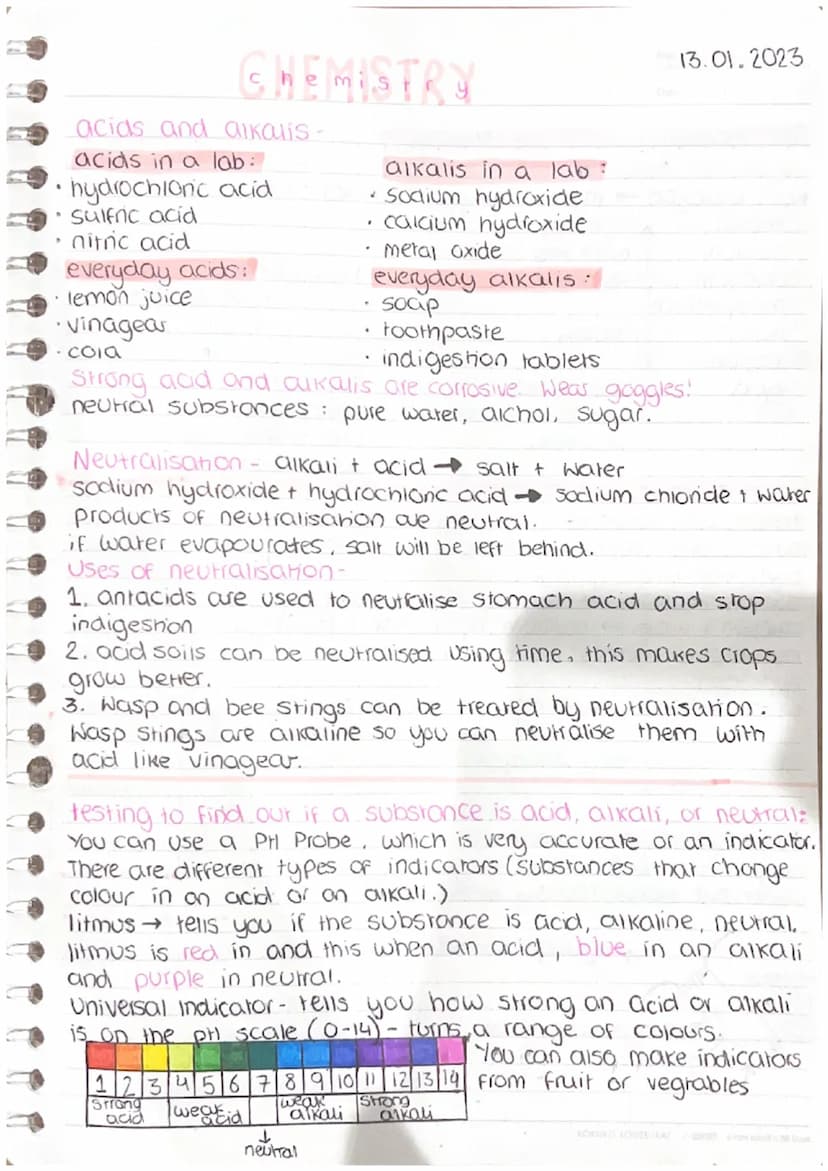 13.01.2023
CHEMISTRY
chemistry
acids and alkalis -
acids in a lab:
· hydrochloric acid
· sulfric acid
· nitric acid
everyday acids:
· lemon juice
· vinagear
· cola
alkalis in a lab:
· sodium hydroxide
· calcium hydroxide
· metal oxide
everyday alkalis:
· soap
· toothpaste
· indigestion tablets
Strong acid and alkalis are corrosive. Wear goggles!
neutral substances: pure water, alchol, sugar.
Neutralisation - alkali + acid → salt + water
sodium hydroxide + hydrochloric acid → sodium chloride + water
products of neutralisation are neutral.
if water evapourates, salt will be left behind.
Uses of neutralisation -
1. antacids are used to neutralise stomach acid and stop
indigestion
2. acid soils can be neutralised using lime, this makes crops
grow better.
3. Wasp and bee stings can be treated by neutralisation.
Wasp stings are alkaline so you can neutralise them with
acid like vinagear.
testing to find out if a substance is acid, alkali, or neutral:
You can use a PH Probe, which is very accurate or an indicator.
There are different types of indicators (substances that change
colour in an acid or an alkali.)
litmus → tells you if the substance is acid, alkaline, neutral.
litmus is red in and this when an acid, blue in an alkali
and purple in neutral.
Universal indicator - tells you how strong an acid or alkali
is on the pH scale (0-14) - turns a range of colours.
1 2 3 4 5 6 7 8 9 10 11 12 13 14
strong acid weak acid weak alkali strong alkali
neutral
You can also make indicators
from fruit or vegtables